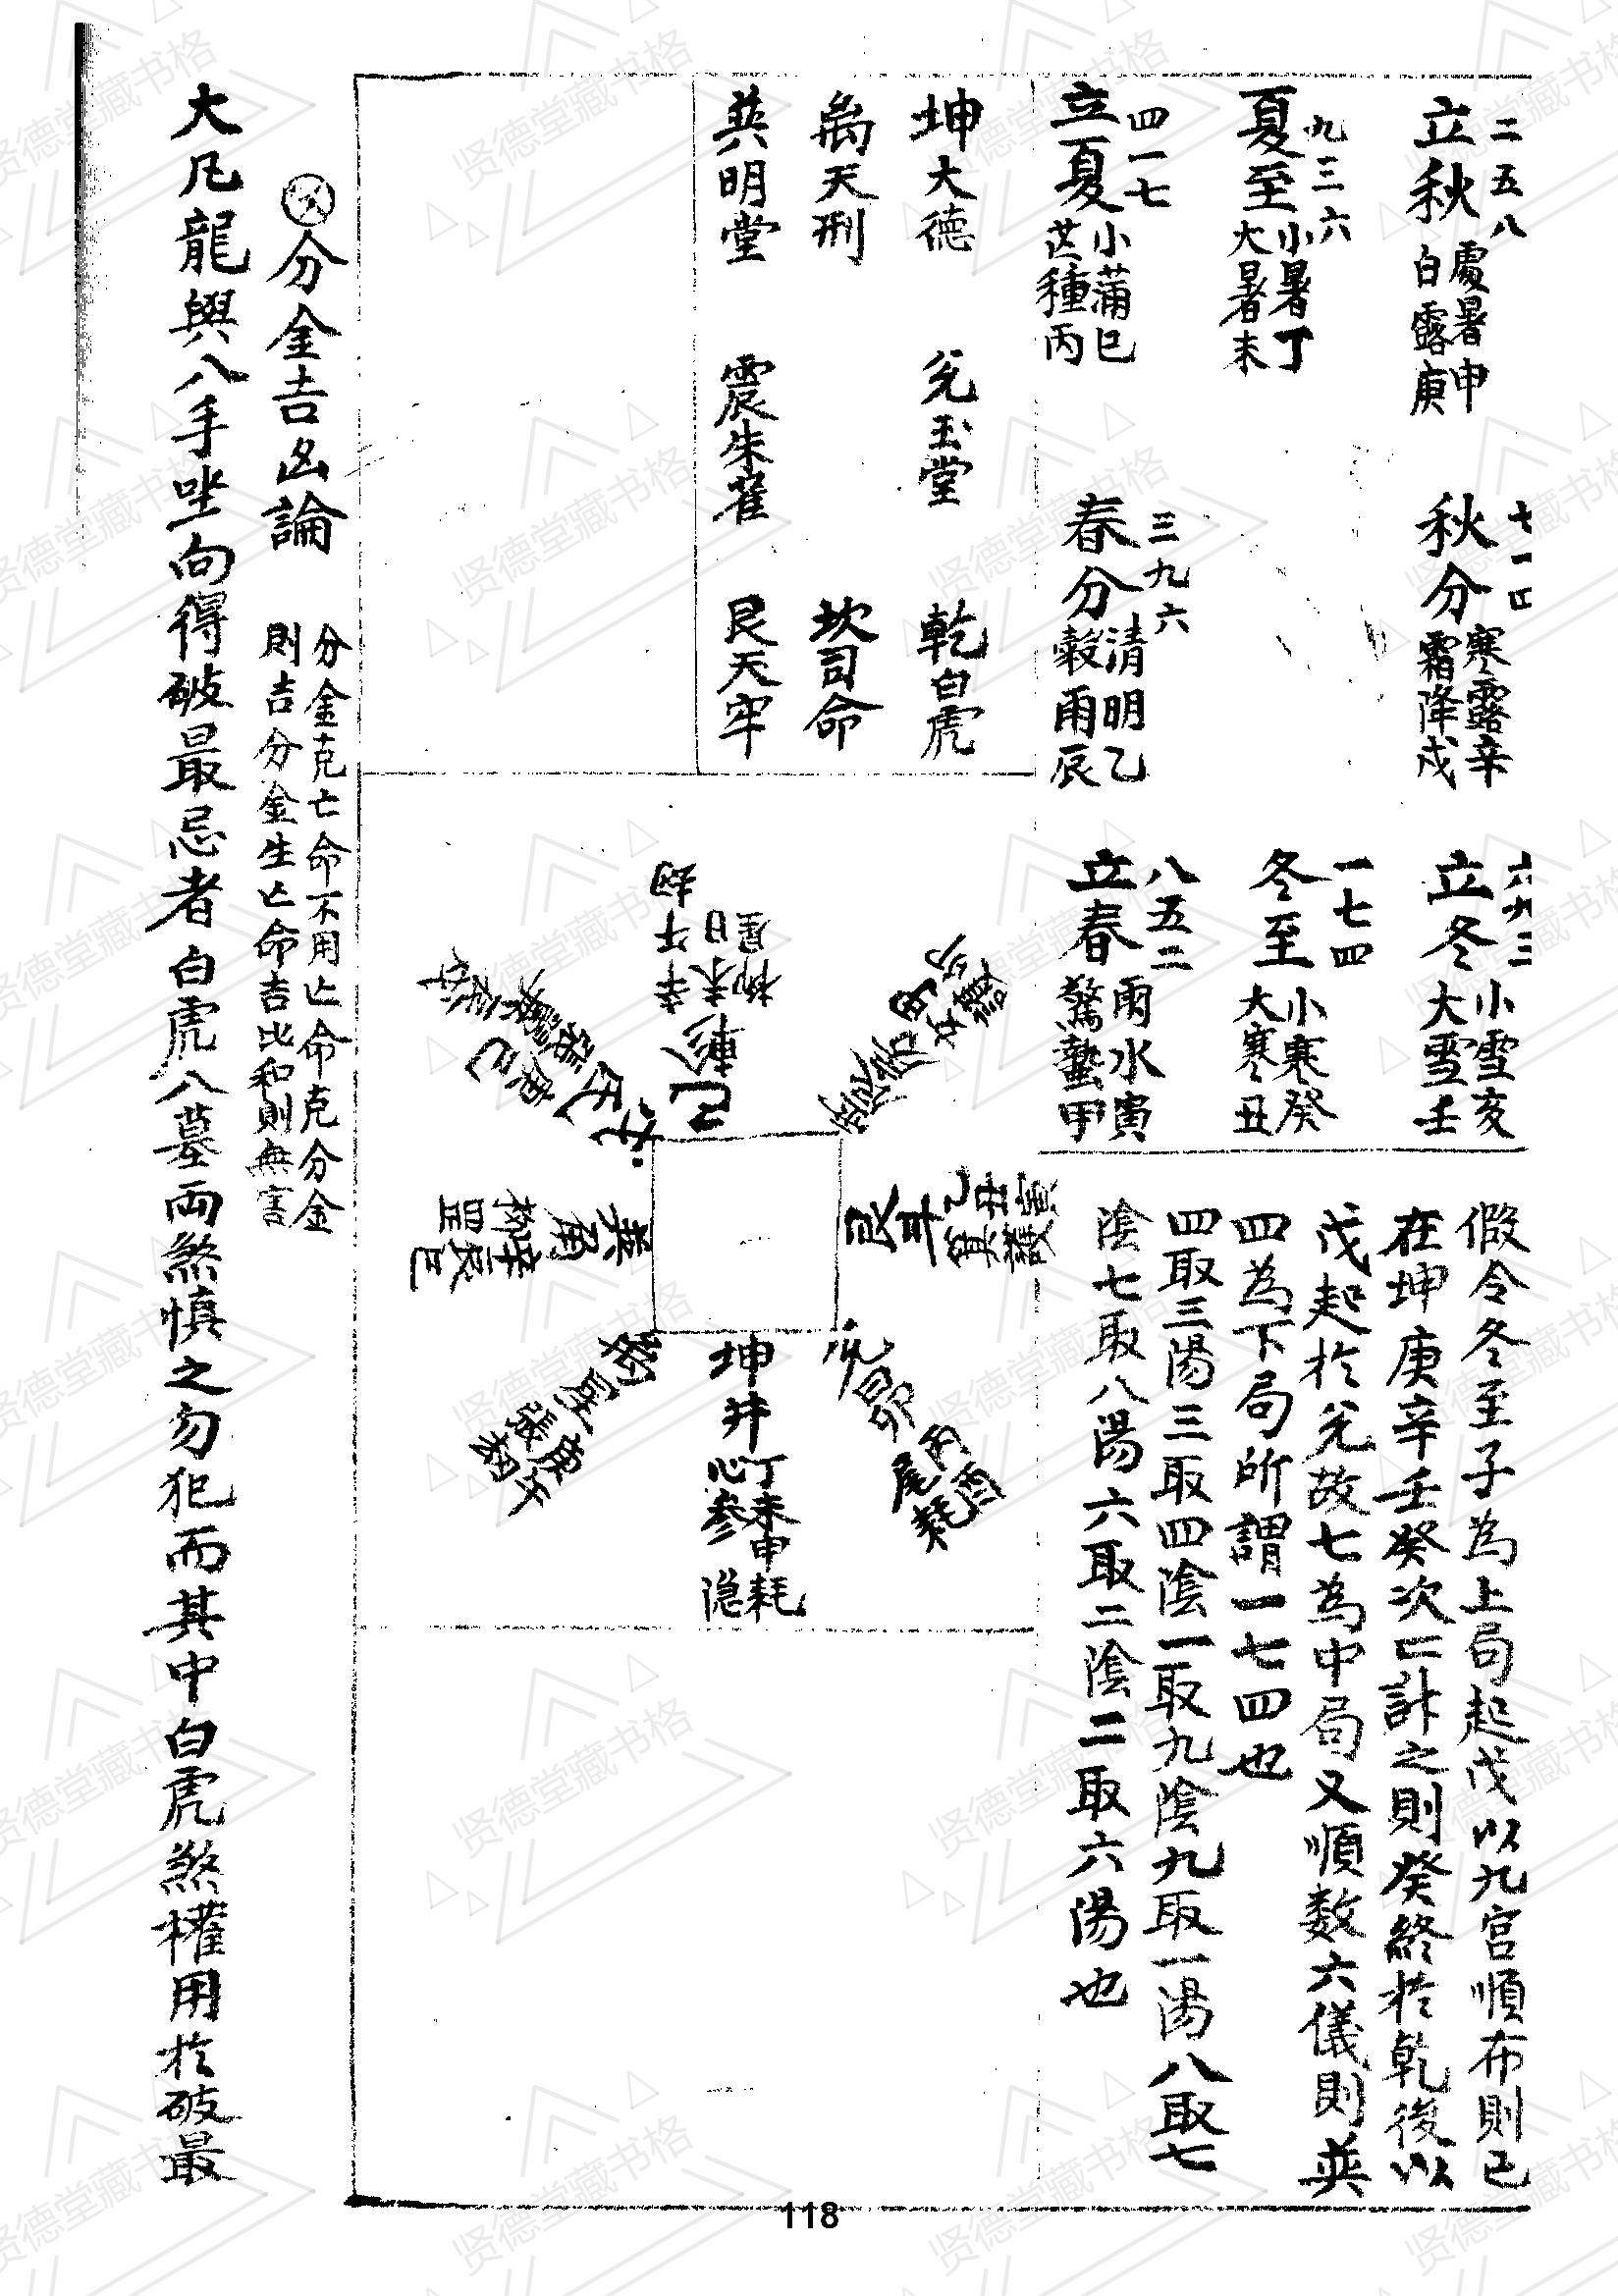 二五八
立秋
處暑申
白露庚
七一四
秋分
寒露辛
霜降戌
六九三
立冬
小雪亥
大雪壬
九三六
夏至
小暑丁
大暑未
一七四
冬至
小寒癸
大寒丑
四一七
立夏
小蒲巳
芒種丙
三九六
春分
清明乙
穀雨辰
八五二
立春
雨水寅
驚蟄甲
假令冬至子為上局起戊以九宮順布則己
在坤庚辛壬癸次亡計之則癸終於乾後以
戊起於兌故七為中局又順数六儀則巽
四為下局所謂一七四也
四取三陽三取四陰一取九陰九取一陽八取七
陰七取八陽六取二陰二取六陽也
坤大德
兌玉堂
乾白虎
离天刑
坎司命
巽明堂
震朱雀
艮天牢
乾
艮斗
坤井
心參
丁未申耗
隐
兌昴
尾
丙酉
巽角
柳辛
星辰巳
張庚
分金吉凶論
分金克亡命不用亡命克分金
則吉分金生亡命吉比和則無害
大凡龍與八手坐向得破最忌者白虎八墓兩煞慎之勿犯而其中白虎煞權用於破最
118
贤德堂藏书格